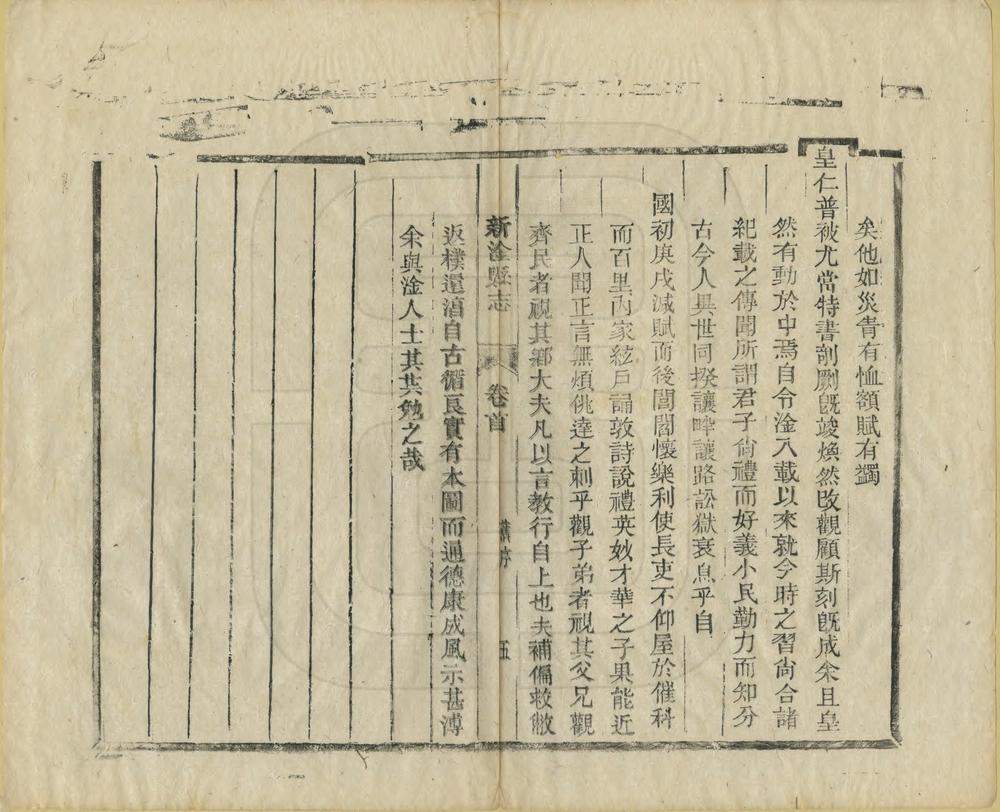 矣他如災青有恤額賦有蠲
皇仁普被尤當特書剞劂旣竣煥然改觀顧斯刻旣成余且皇
然有動於中焉自令淦入載以來就今時之習尙合諸
紀載之傳聞所謂君子尙禮而好義小民勤力而知分
古今人異世同揆讓畔讓路訟獄衰息乎自
國初庚戌減賦而後閭閻懷樂利使長吏不仰屋於催科
而百里內家絃戶誦敦詩說禮英妙才華之子果能近
正人聞正言無煩佻達之刺乎觀子弟者視其父兄觀
齊民者視其鄕大夫凡以言教行自上也夫補偏救敝
新淦縣志
卷首
舊序
五
返樸還淳自古循良實有本圖而通德康成風示甚溥
余與淦人士其共勉之哉